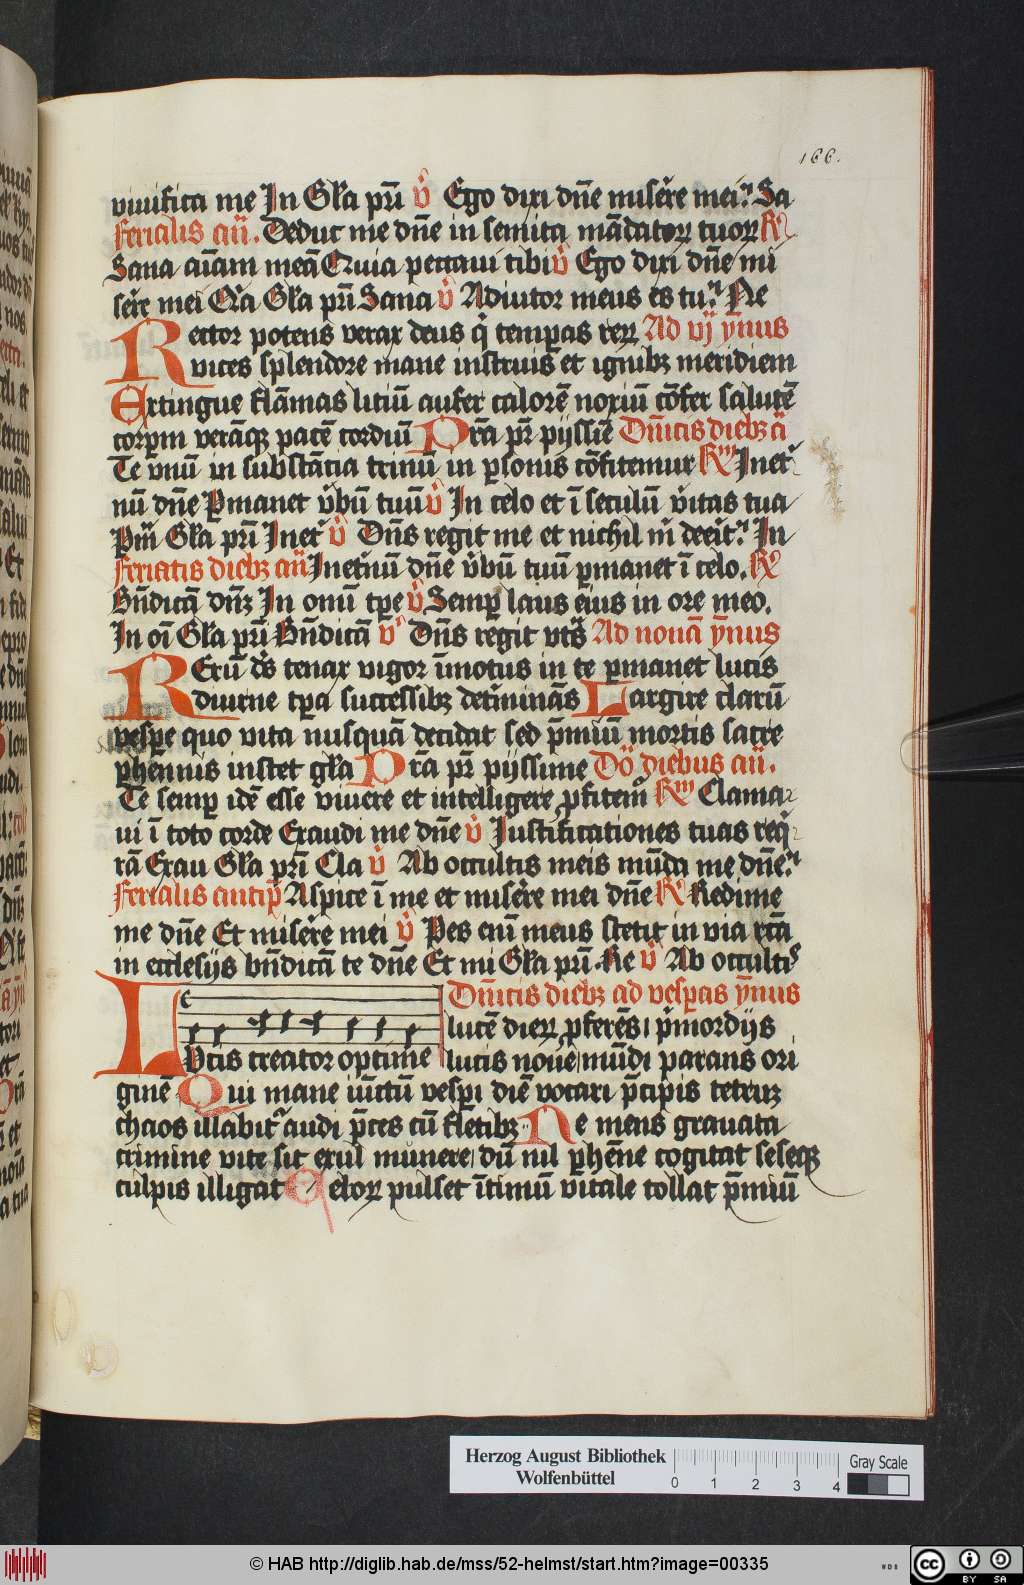 166.
viuifica me In Gl'a pr̄i v̊ Ego dixi dn̄e miser̄e mei. Sa
ferialis an̄. Deduc me dn̄e in semita mādatoꝝ tuoꝝ R̊
Sana aīam meā Qr̄uia peccaui tibi v̊ Ego dixi dn̄e mi
ser̄e mei Qr̄a Gl'a pr̄i Sana v̊ Adiutor meus es tu. Ne
Rector potens verax deus q̇ temꝑas reꝝ Ad vj ym̄nus
vices splendore mane instruis et ignibꝫ meridiem
Extingue flāmas litiū aufer calorē noxiū cōfer salutē
corꝑm verāqꝫ pacē cordiū Pr̄a pr̄ pijssīe Dn̄icis diebꝫ ā
Te vnū in substātia trinū in ꝑsonis cōfitemur Rm̄ Inet'
nū dn̄e ꝑmanet v̄bū tuū v̊ In celo et ī seculū v̄itas tua
ꝑm̄ Gl'a pr̄i Inet' v̊ Dn̄s regit me et nichil m̄ deer̄it. In
ferialis diebꝫ an̄ Inet'nū dn̄e v̄bū tuū ꝑmanet ī celo. R̊
Bn̄dicā dn̄ꝫ In om̄i tp̄e v̊ Semꝑ laus eius in ore meo.
In oī Gl'a pr̄i Bn̄dicā v̊ Dn̄s regit vts̄ Ad nonā ym̄nus
Rerū ds̄ tenax vigor īmotus in te ꝑmanet lucis
diurne tp̄a successibꝫ det'minās Largire clarū
vesꝑe quo vita nusquā decidat sed p̄miū mortis sacre
ꝑhennis instet gl'a Pr̄a pr̄ pijssime Dō diebus an̄.
Te semꝑ idē esse viuere et intelligere ꝓfitem̄ Rm̄ Clama
ui ī toto corde Exaudi me dn̄e v̊ Justificationes tuas req̇
rā Exau Gl'a pr̄i Cla v̊ Ab occultis meis mūda me dn̄e.
ferialis antip̄ Aspice ī me et miser̄e mei dn̄e R̊ Redime
me dn̄e Et miser̄e mei v̊ Pes eni̅ meus stetit in via rc̄ā
in ecclesijs bn̄dicā te dn̄e Et mi Gl'a pr̄i. Re v̊ Ab occultis
Dn̄icis diebꝫ ad vesꝑas ym̄nus
lucē dieꝝ ꝓferēs, p̄mordijs
Lvcis creator optime lucis noue, mūdi parans ori
ginē Qui mane iūctū vesꝑi diē vocari p̄cipis tetruꝫ
chaos illabit' audi p̄ces cū fletibꝫ Ne mens grauata
crimine vite sit exul munere, dū nil ꝑhēne cogitat seseqꝫ
culpis illigat Celoꝝ pulset ītimū vitale tollat p̄miū
Herzog August Bibliothek
Wolfenbüttel
0 1 2 3 4
Gray Scale
© HAB http://diglib.hab.de/mss/52-helmst/start.htm?image=00335
WDB
cc BY SA